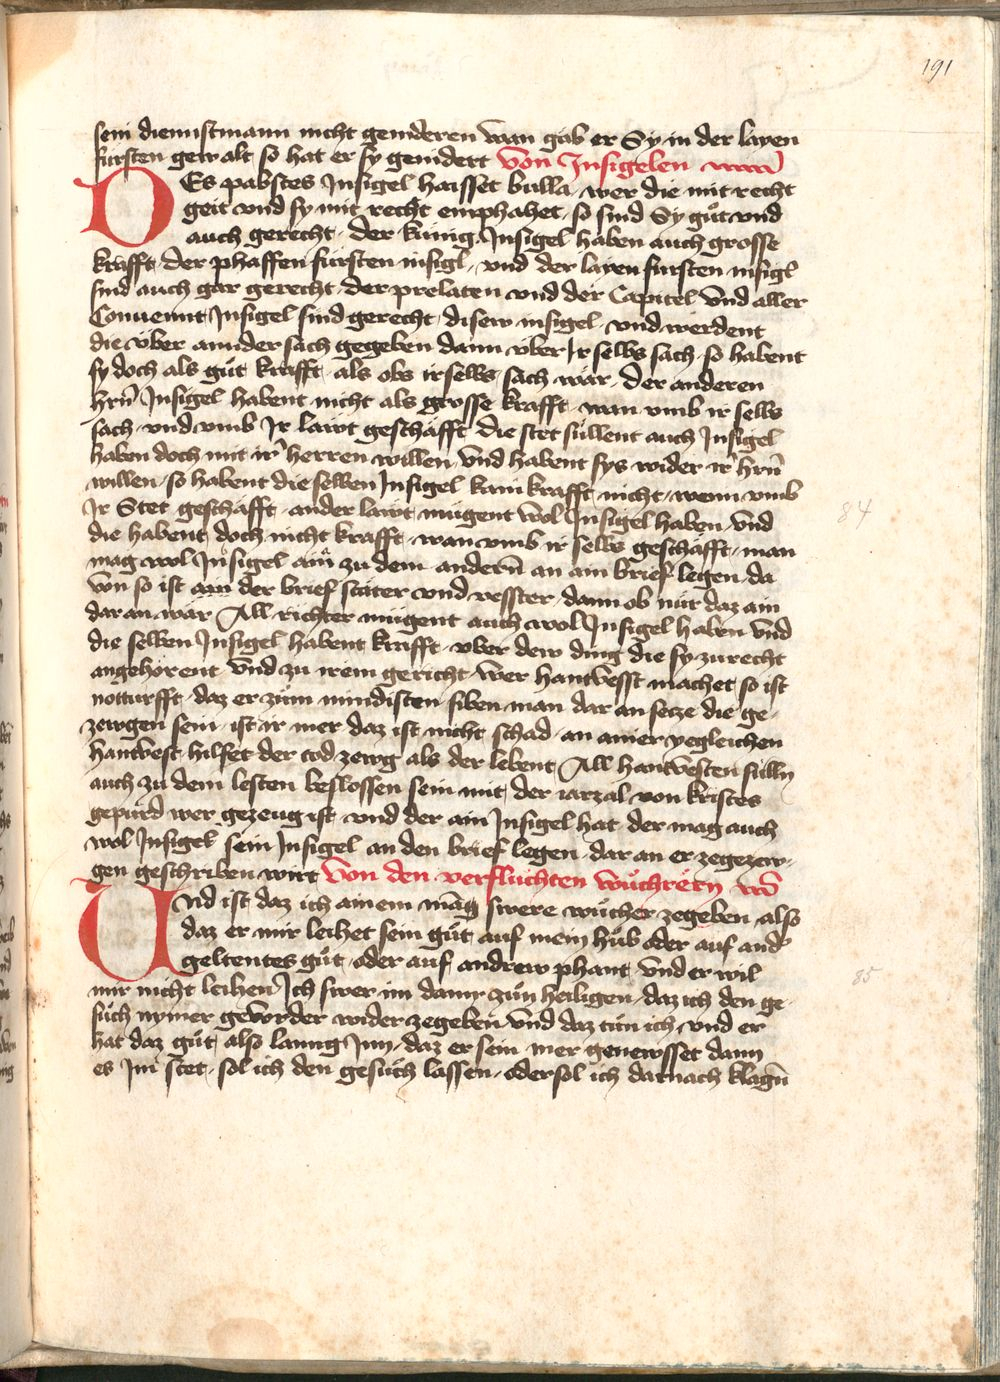 191
sein diennstmann nicht genideren wan gäb er Sy in der layen
fürsten gewalt so hat er sy genidert von Insigelen
DEs pabstes Insigel haisset bulla, wer die mit recht
geit vnd sy mit recht emphahet, so sind Sy gůt vnd
auch gerecht, der künig Insigel haben auch grosse
krafft, der phaffen fürsten insigl, vnd der layen fürsten insigl
sind auch gar gerecht, der prelaten vnd der Capitel vnd aller
Conuennt Insigel sind gerecht, disew insigel, vnd werdent
die vber annder sach gegeben dann vber Ir selbs sach, so habent
sy doch als gůt krafft, als obs ir selbs sach wär, der anderen
hrn̄ Insigel habent nicht als grosse krafft, wan vmb ir selbs
sach, vnd vmb Ir läwt geschäfft, die stet süllent auch Insigel
haben doch mit irʼ herren willen, vnd habent sys wider irʼ hrn̄
willen, so habent die selben Insigel kain krafft nicht, wenn vmb
Ir Stet geschäfft, ander läwt mugent wol Insigel haben, vnd
84
die habent doch nicht krafft, wan vmb ir selbs geschäfft, man
mag wol Insigel ain zu dem andern̄ an ain brief legen, da
von so ist ain der brief stäter vnd vesster, dann ob nür daz ain
daran wär All richter mügent auch wol Insigel haben vnd
die selben Insigel habent krafft, vber dew ding die sy zu recht
angehörent vnd zu irem gericht, wer hantvesst machet so ist
notturfft, daz er züm mindisten siben man dar an setze die ge-
zewgen sein, ist ir mer daz ist nicht schad, an ainer yegleichen
hantvest, hilfet der tod zewg als der lebent, All hantvesten sülln
auch zu dem lesten beslossen sein mit, der iarzal von kristes
gepürd wer gezeug ist, vnd der ain Insigel hat, der mag auch
wol Insigel sein Insigel an den brief legen, dar an er ze gezew-
gen geschriben wirt Von den verflüchten wůchrern
VNd ist daz ich ainem man swere wůcher zegeben, also
daz er mir leihet sein gůt, auf mein hůb oder auf and
geltentes gůt, oder auf andrew phant, vnd er wil
85
mir nicht leihen Ich swer im dann zün heiligen, daz ich den ge-
sůch nymer gevorder wider zegeben vnd daz tün ich, vnd er
hat daz gůt also lanng Inn, daz er sein mer genewsset dann
es Im stet, sol ich den gesůch lassen, oder sol ich darnach klagn̄